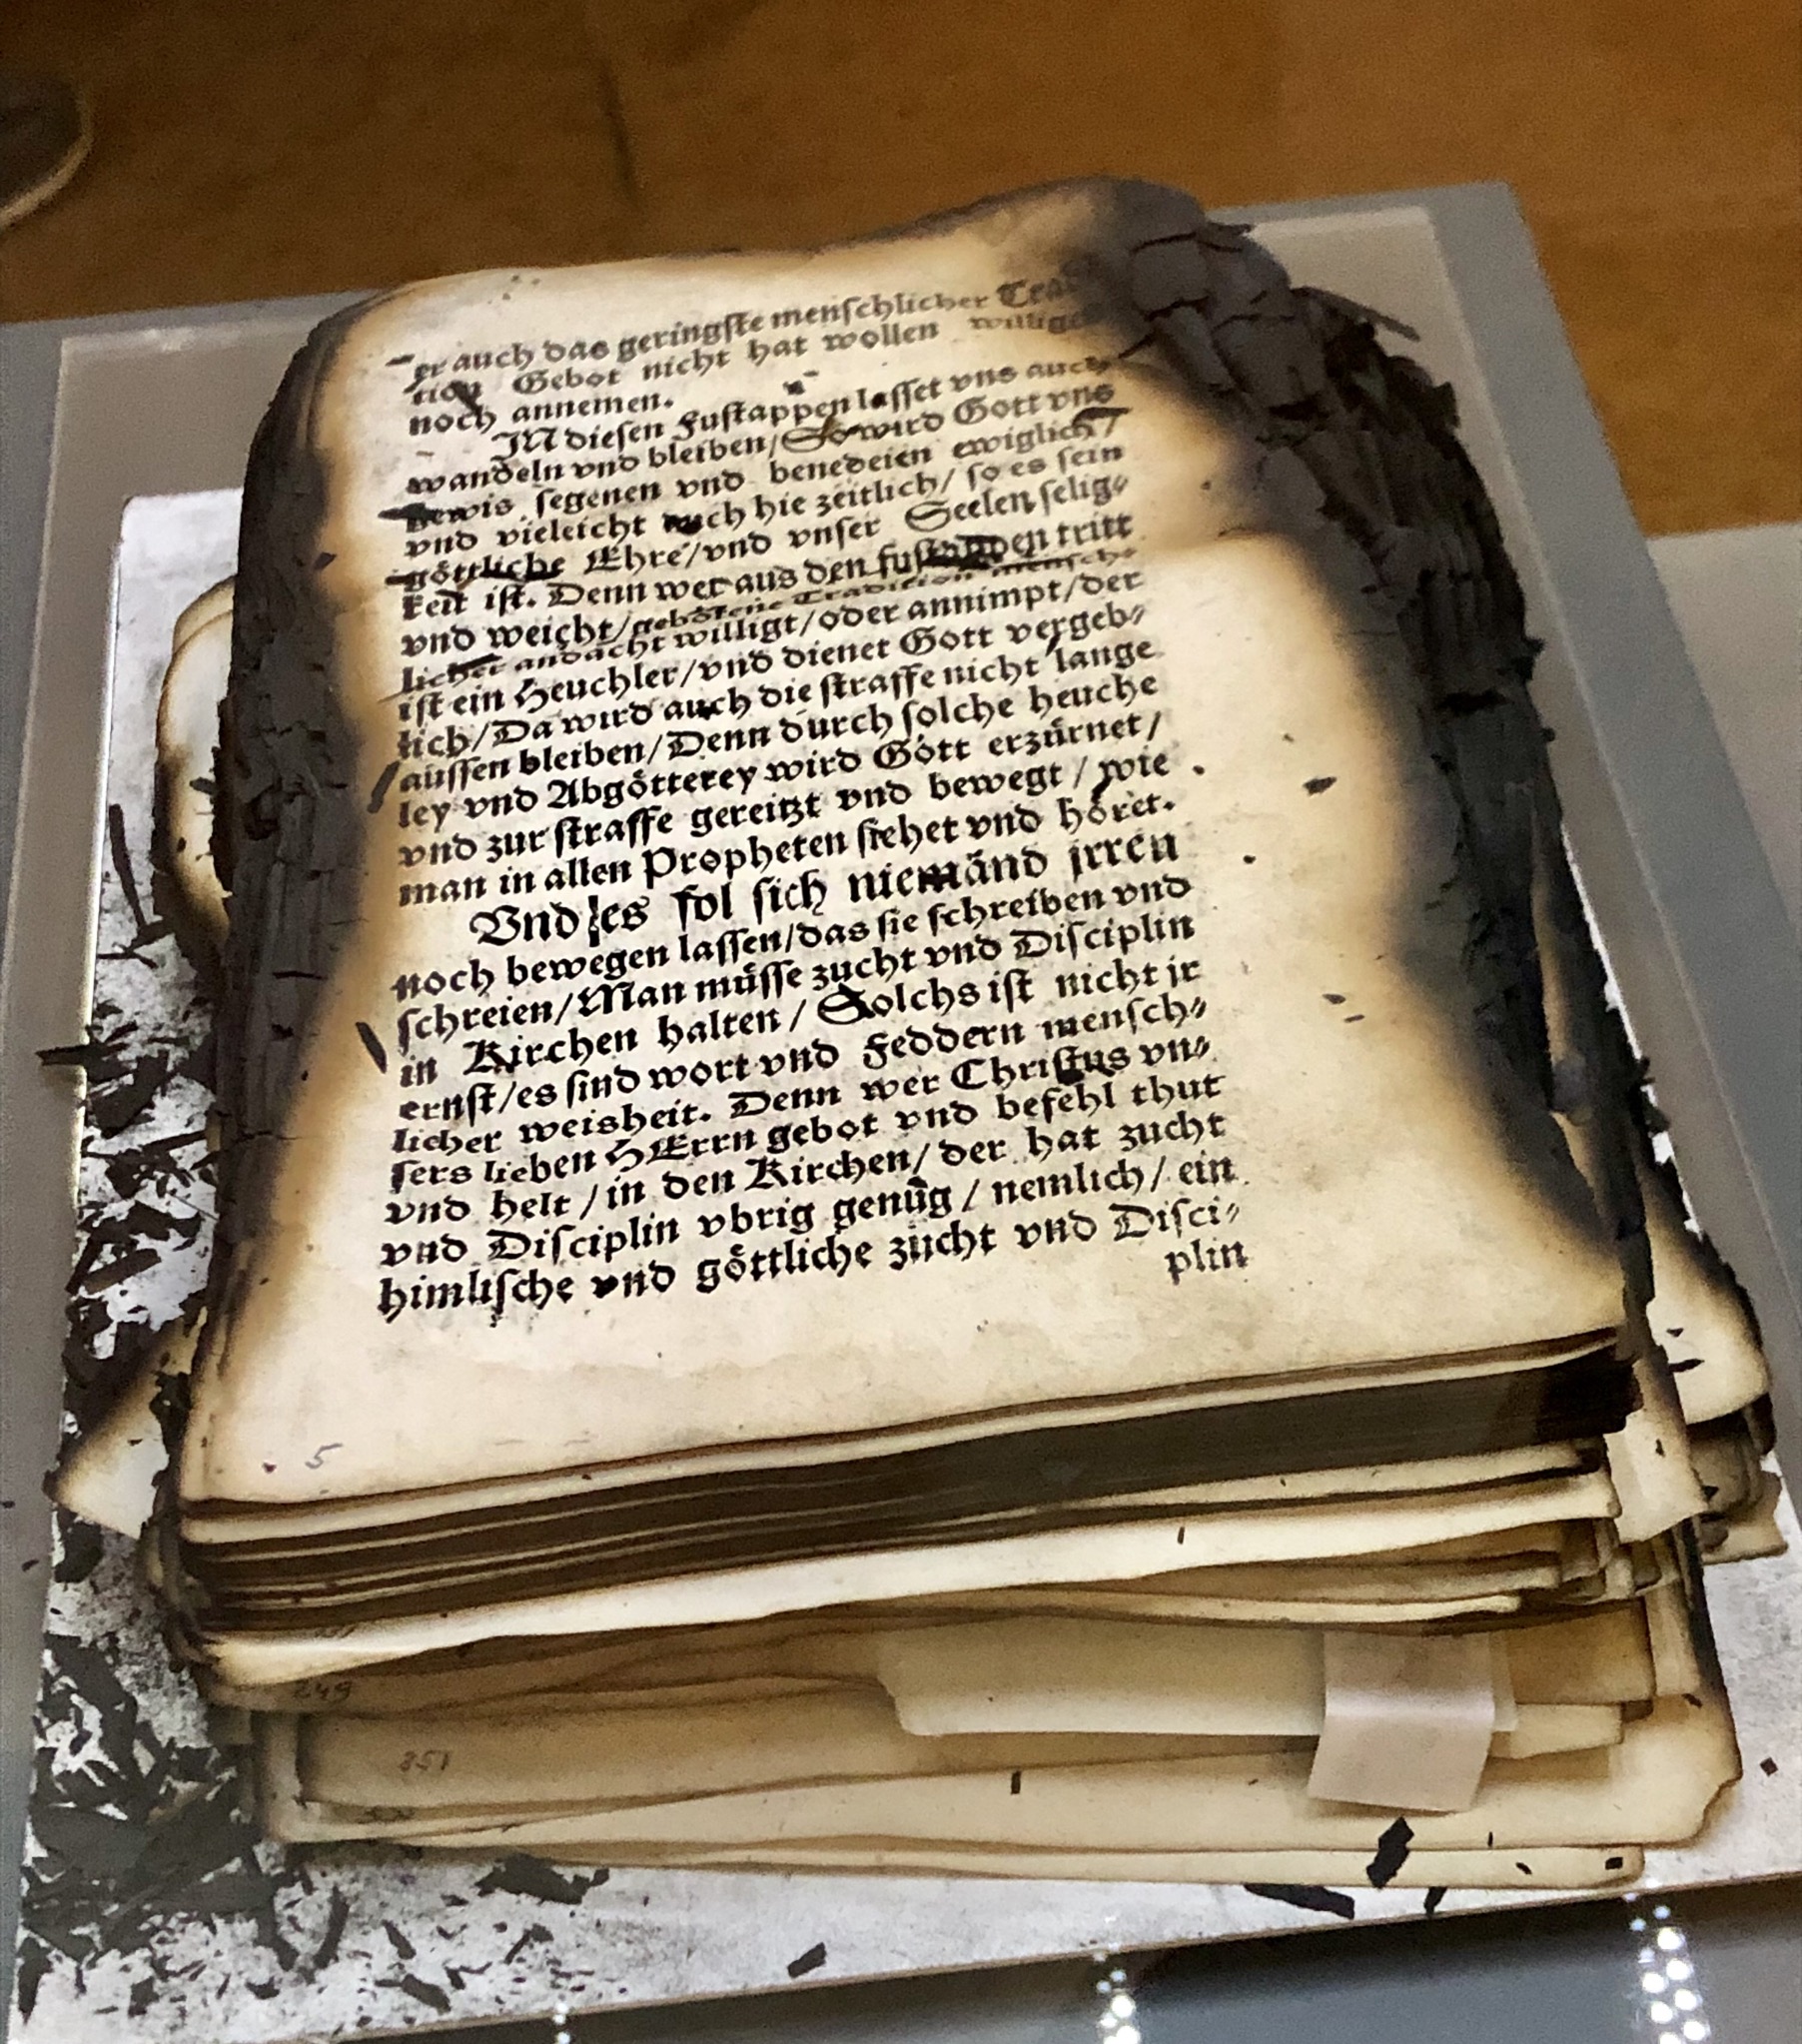 er auch das geringste menschlicher
tion Gebot nicht hat wollen
noch annemen.
IN diesen Fustappen lasset vns auch
wandeln vnd bleiben/So wird Gott vns
gewis segenen vnd benedeien ewiglich/
vnd vieleicht auch hie zeitlich/so es sein
göttliche Ehre/vnd vnser Seelen selig⸗
keit ist. Denn wer aus den fustappen tritt
vnd weicht/gebotene Tradition mensch⸗
licher andacht willigt/oder annimpt/der
ist ein Heuchler/vnd dienet Gott vergeb⸗
lich/Da wird auch die straffe nicht lange
aussen bleiben/Denn durch solche heuche
ley vnd Abgötterey wird Gott erzürnet/
vnd zur straffe gereitzt vnd bewegt/wie
man in allen Propheten siehet vnd höret.
Vnd es sol sich niemand jrren
noch bewegen lassen/das sie schreiben vnd
schreien/Man müsse zucht vnd Disciplin
in Kirchen halten/Solchs ist nicht jr
ernst/es sind wort vnd Feddern mensch⸗
licher weisheit. Denn wer Christus vn⸗
sers lieben HErrn gebot vnd befehl thut
vnd helt/in den Kirchen/der hat zucht
vnd Disciplin vbrig genug/nemlich/ein
himlische vnd göttliche zucht vnd Disci⸗
plin
5
249
351